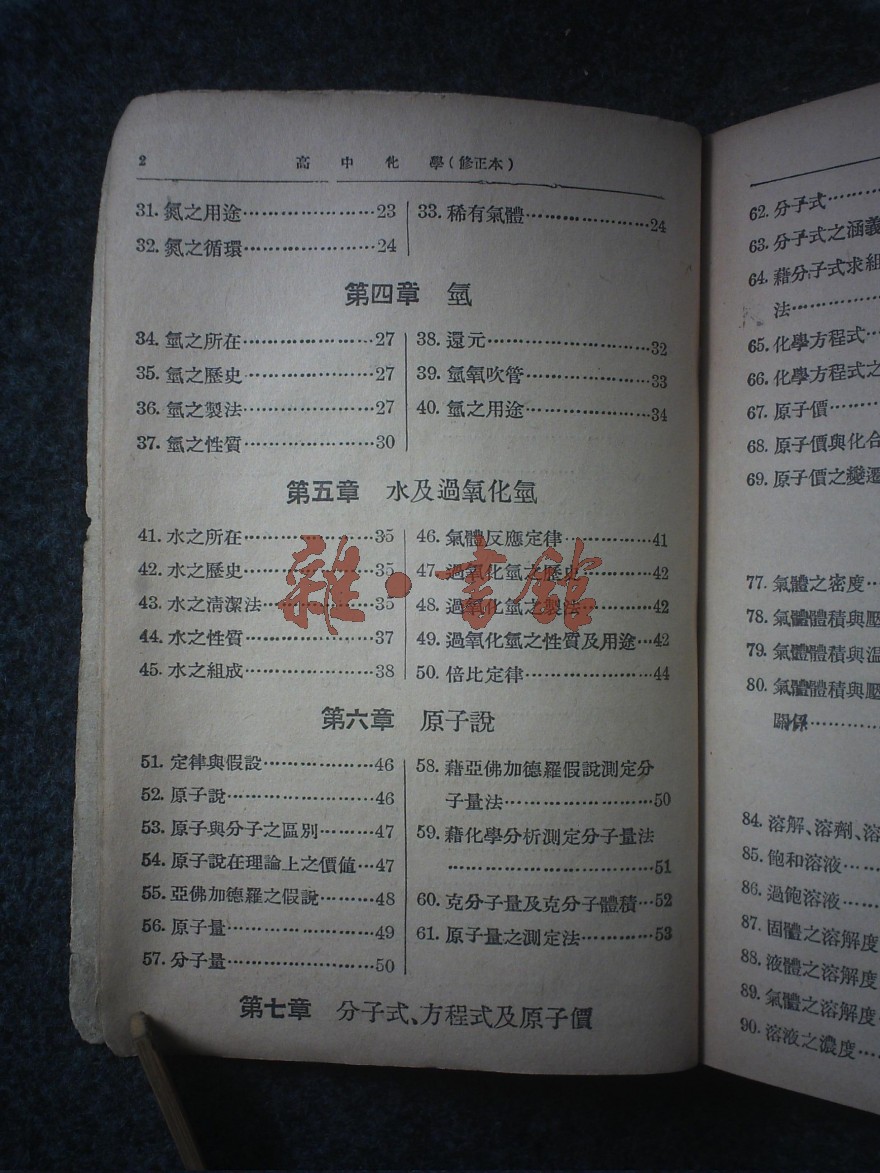 2 高中化學(修正本)
31. 氮之用途……………………23
32. 氮之循環……………………24
33. 稀有氣體……………………24
第四章 氫
34. 氫之所在……………………27
35. 氫之歷史……………………27
36. 氫之製法……………………27
37. 氫之性質……………………30
38. 還元……………………32
39. 氫氧吹管……………………33
40. 氫之用途……………………34
第五章 水及過氧化氫
41. 水之所在……………………35
42. 水之歷史……………………35
43. 水之清潔法……………………35
44. 水之性質……………………37
45. 水之組成……………………38
46. 氣體反應定律……………41
47. 過氧化氫之歷史…………42
48. 過氧化氫之製法…………42
49. 過氧化氫之性質及用途…42
50. 倍比定律……………………44
雜·書館
第六章 原子說
51. 定律與假設…………………46
52. 原子說……………………46
53. 原子與分子之區別………47
54. 原子說在理論上之價值…47
55. 亞佛加德羅之假說………48
56. 原子量……………………49
57. 分子量……………………50
58. 藉亞佛加德羅假說測定分
子量法……………………50
59. 藉化學分析測定分子量法
……………………51
60. 克分子量及克分子體積…52
61. 原子量之測定法…………53
第七章 分子式、方程式及原子價
62. 分子式………
63. 分子式之涵義
64. 藉分子式求組
法…………
65. 化學方程式…
66. 化學方程式之
67. 原子價………
68. 原子價與化合
69. 原子價之變遷
77. 氣體之密度…
78. 氣體體積與壓
79. 氣體體積與溫
80. 氣體體積與壓
關係…………
84. 溶解、溶劑、溶
85. 飽和溶液……
86. 過飽溶液……
87. 固體之溶解度
88. 液體之溶解度
89. 氣體之溶解度
90. 溶液之濃度…